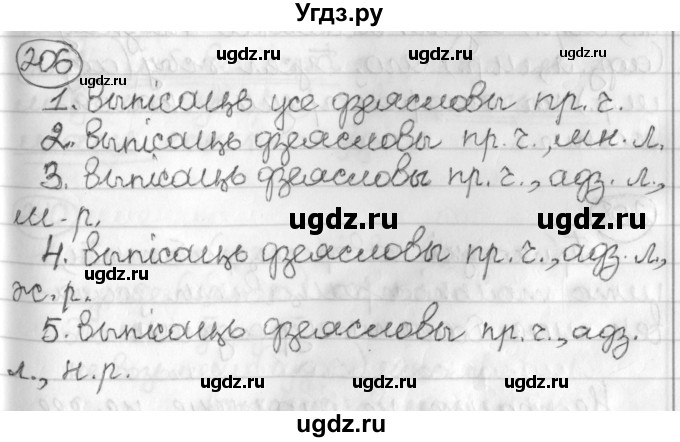 Угдз.ру
206
ugdz.ru ugdz.ru ugdz.ru
ugdz.ru
1. Выпісаць усе дзеясловы пр. ч.
2. Выпісаць дзеясловы пр. ч., мн. л.
ugdz.ru ugdz.ru ugdz.ru
3. Выпісаць дзеясловы пр. ч., адз. л.,
м. р.
ugdz.ru ugdz.ru
4. Выпісаць дзеясловы пр. ч., адз. л.,
ugdz.ru
ж. р.
ugdz.ru ugdz.ru ugdz.ru
5. Выпісаць дзеясловы пр. ч., адз.
л., н. р.
ugdz.ru ugdz.ru ugdz.ru
Угдз.ру